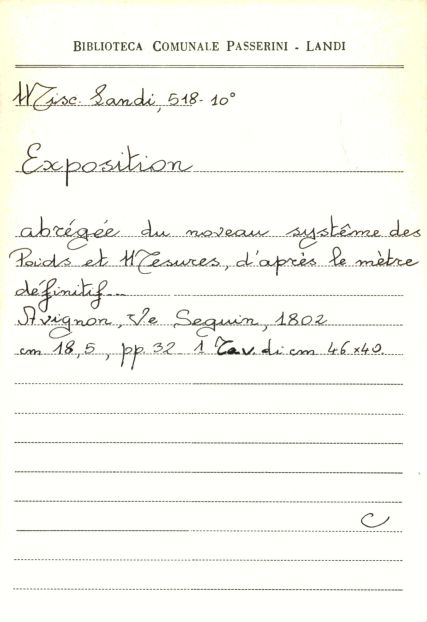 BIBLIOTECA COMUNALE PASSERINI - LANDI
Misc. Landi, 518-10°
Exposition
abrégée du noveau système des
Poids et Mesures, d'après le mètre
définitif...
Avignon, Ve Seguin, 1802
cm 18,5, pp. 32 1 Tav. di cm 46x40.
C